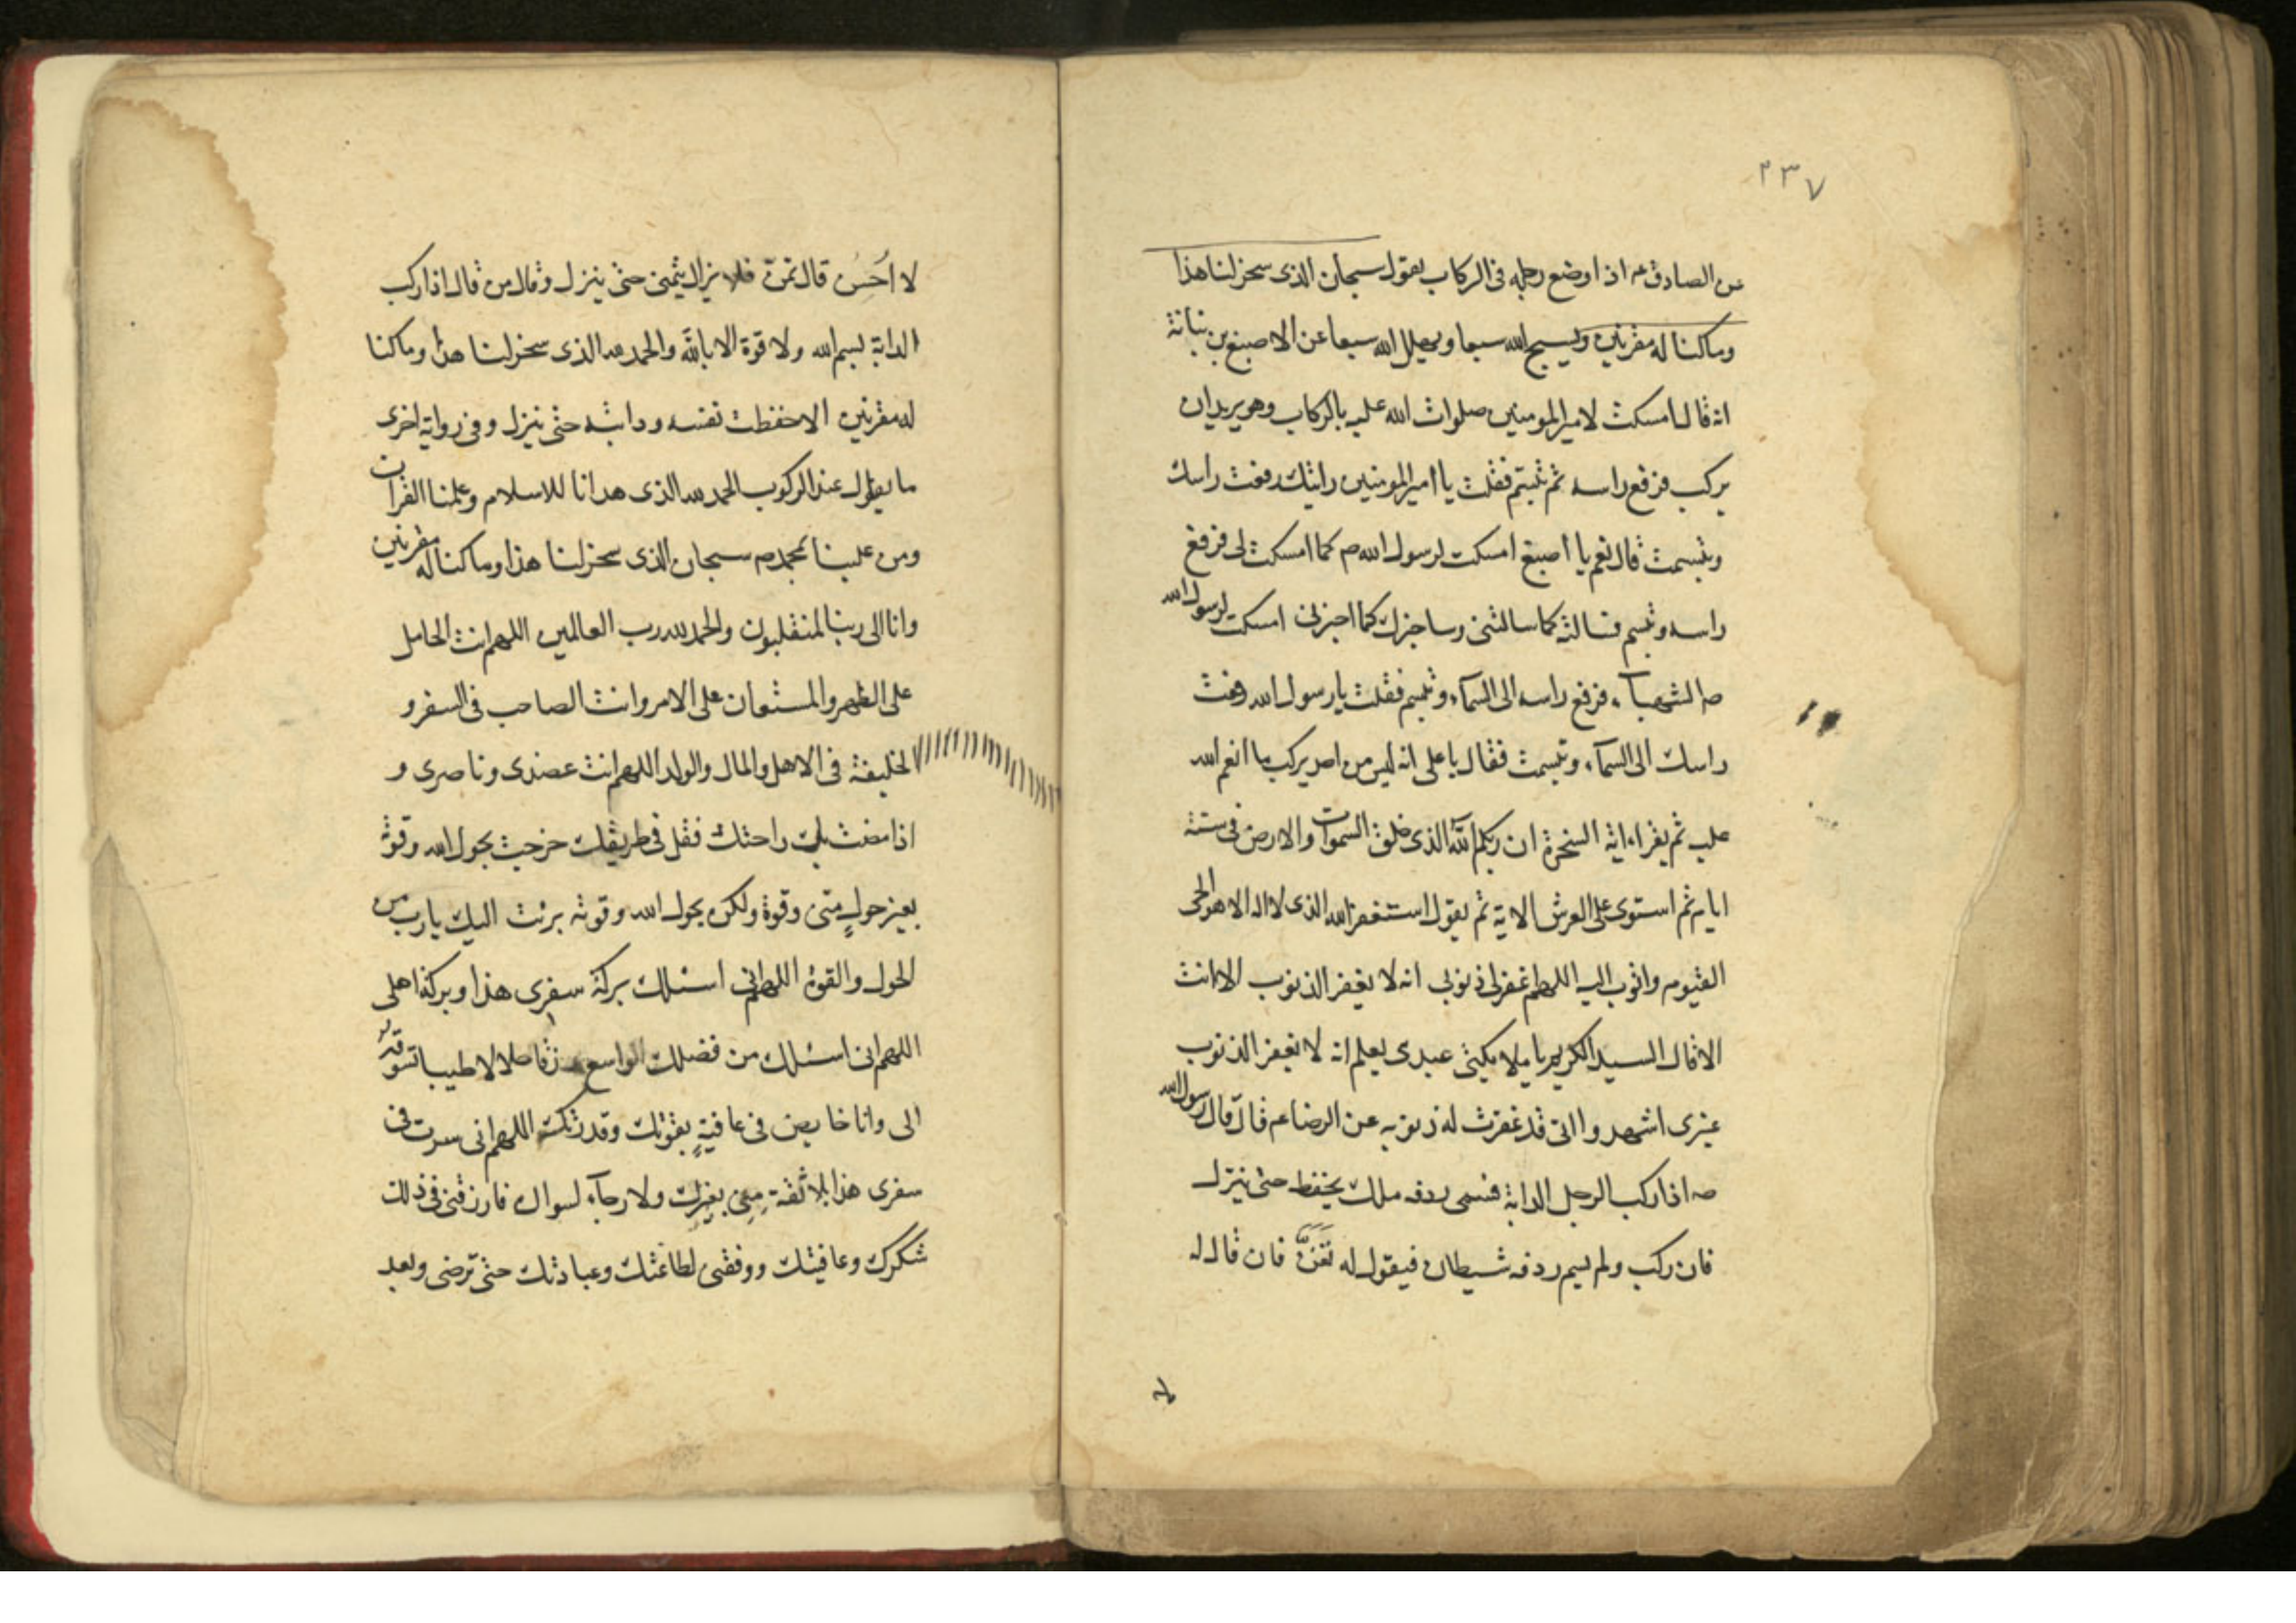 ٢٣٧
عن الصادق ع اذا وضع رجله فى الركاب يقول سبحان الذى سخر لنا هذا
وما كنا له مقرنين ويسبح الله سبعا ويهلل الله سبعا عن الاصبغ بن نباتة
انه قال امسكت لامير المومنين صلوات الله عليه بالركاب وهو يريد ان
يركب فرفع راسه ثم تبسم فقلت يا امير المومنين رايتك رفعت راسك
وتبسمت قال نعم يا اصبغ امسكت لرسول الله ص كما امسكت لى فرفع
راسه وتبسم فسالته كما سالتنى وساخبرك كما اخبرنى امسكت لرسول الله
ص الشهبآء فرفع راسه الى السمآء وتبسم فقلت يا رسول الله رفعت
راسك الى السمآء وتبسمت فقال يا على انه ليس من احد يركب ما انعم الله
عليه ثم يقراء اية السخرة ان ربكم الله الذى خلق السموات والارض فى ستة
ايام ثم استوى على العرش الاية ثم يقول استغفر الله الذى لا اله الا هو الحى
القيوم واتوب اليه اللهم اغفر لى ذنوبى انه لا يغفر الذنوب الا انت
الا قال السيد الكريم يا ملايكتى عبدى يعلم انه لا يغفر الذنوب
غيرى اشهدوا انى قد غفرت له ذنوبه عن الرضا ع قال قال رسول الله
ص اذا ركب الرجل الدابة فسمى ردفه ملك يحفظه حتى ينزل
فان ركب ولم يسم ردفه شيطان فيقول له تغنّ فان قال له
لا اُحسِن قال تمنّ فلا يزال يتمنى حتى ينزل وقال من قال اذا ركب
الدابة بسم الله ولا قوة الا بالله والحمد لله الذى سخر لنا هذا وما كنا
له مقرنين الا حفظت نفسه ودابته حتى ينزل وفى رواية اخرى
ما يقول عند الركوب الحمد لله الذى هدانا للاسلام وعلمنا القران
ومن علينا بمحمد ص سبحان الذى سخر لنا هذا وما كنا له مقرنين
وانا الى ربنا لمنقلبون والحمد لله رب العالمين اللهم انت الحامل
على الظهر والمستعان على الامر وانت الصاحب فى السفر و
الخليفة فى الاهل والمال والولد اللهم انت عضدى وناصرى و
اذا مضت بك راحتك فقل فى طريقك خرجت بحول الله وقوته
بغير حولٍ منى وقوة ولكن بحول الله وقوته برئت اليك يا رب من
الحول والقوة اللهم انى اسئلك بركة سفرى هذا وبركة اهلى
اللهم انى اسئلك من فضلك الواسع رزقا حلالا طيبا تسوقه
الى وانا خايض فى عافيةٍ بقوتك وقدرتك اللهم انى سرت فى
سفرى هذا بلا ثقة منى بغيرك ولا رجآء لسواك فارزقنى فى ذلك
شكرك وعافيتك ووفقنى لطاعتك وعبادتك حتى ترضى وبعد